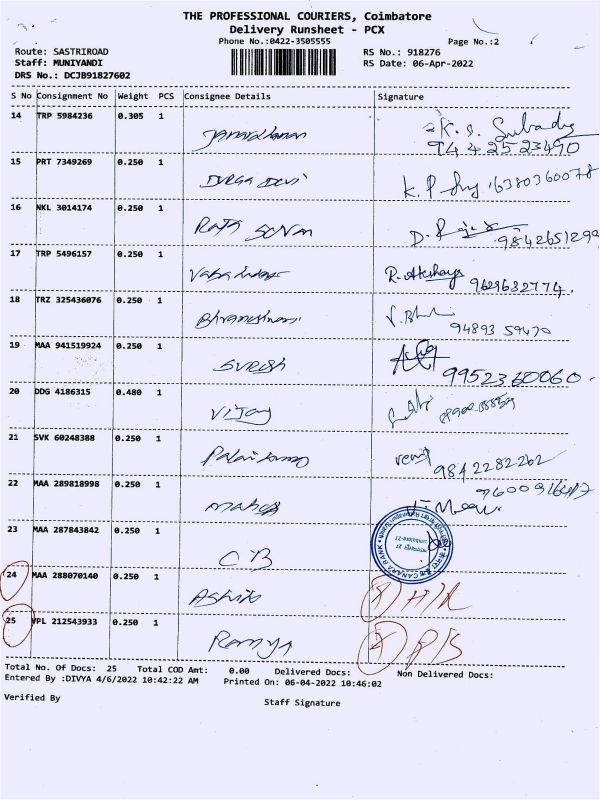 THE PROFESSIONAL COURIERS, Coimbatore
Delivery Runsheet - PCX
Phone No.:0422-3505555 Page No.:2
Route: SASTRIROAD RS No.: 918276
Staff: MUNIYANDI RS Date: 06-Apr-2022
DRS No.: DCJB91827602
S No Consignment No Weight PCS Consignee Details Signature
14 TRP 5984236 0.305 1 Janardhanan K. S. Subadra
94425 23490
15 PRT 7349269 0.250 1 DURGA DEVI K. P 6380360078
16 NKL 3014174 0.250 1 RAJA D. 9842651299
17 TRP 5496157 0.250 1 R. Atchaya 9629632774.
18 TRZ 325436076 0.250 1 V. 94893 59470
19 MAA 941519924 0.250 1 SURESH 9952360060.
20 DDG 4186315 0.480 1 VIJAY
21 SVK 60248388 0.250 1 9842282262
22 MAA 289818998 0.250 1 mahes
23 MAA 287843842 0.250 1 CB CANARA BANK
24 MAA 288070140 0.250 1
25 VPL 212543933 0.250 1 Ramya
Total No. Of Docs: 25 Total COD Amt: 0.00 Delivered Docs: Non Delivered Docs:
Entered By :DIVYA 4/6/2022 10:42:22 AM Printed On: 06-04-2022 10:46:02
Verified By Staff Signature